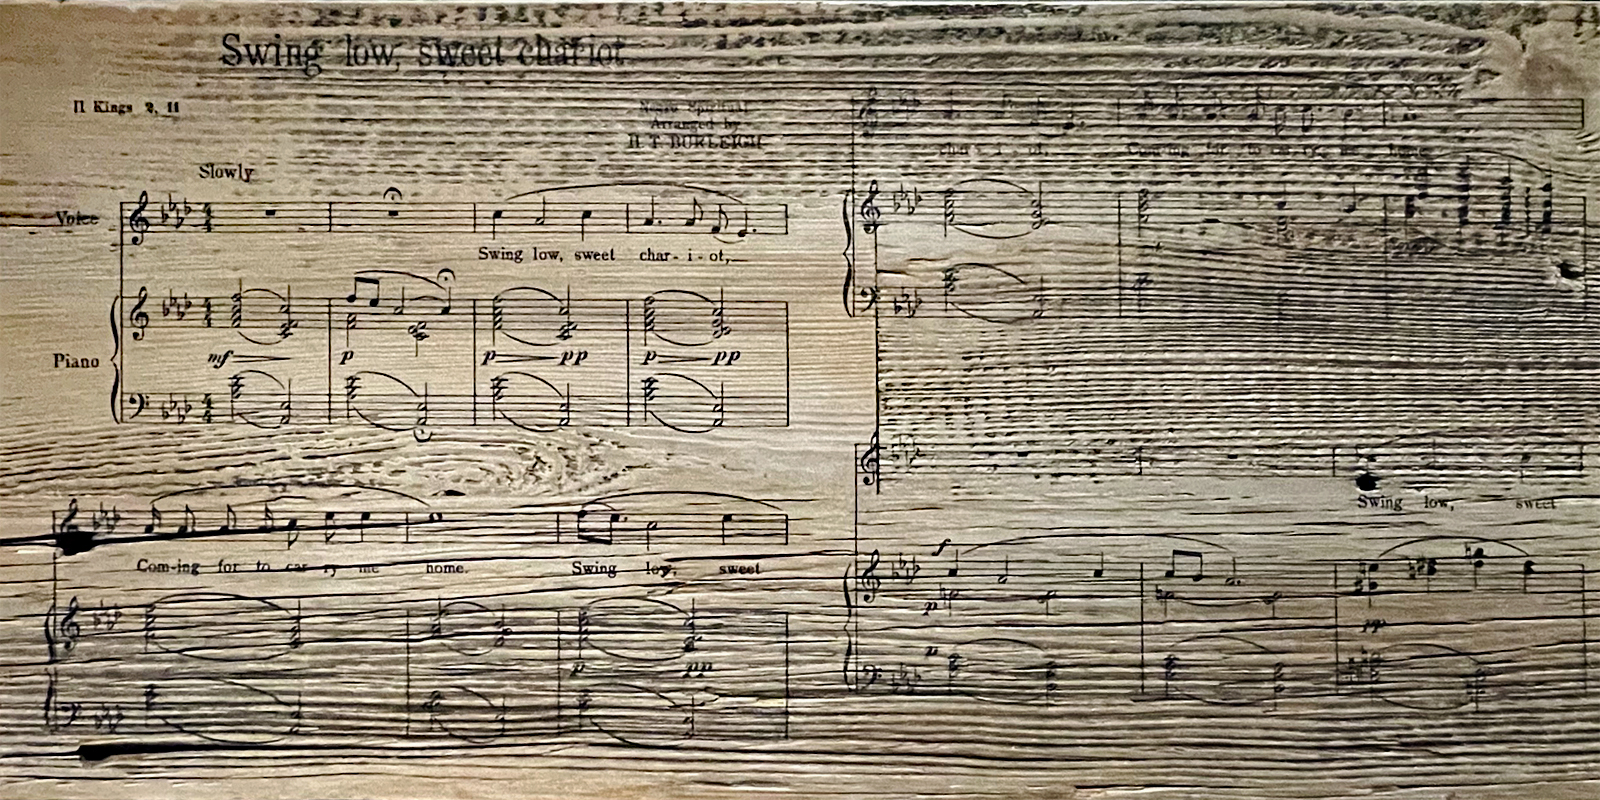 Swing low, sweet chariot
II Kings 2, 11
Negro Spiritual
Arranged by
H. T. BURLEIGH
Slowly
Voice
Swing low, sweet char - i - ot,
Piano
mf p p pp p pp
Com-ing for to car - ry me home. Swing low, sweet
p pp
char - i - ot, Com-ing for to car - ry me home.
Swing low, sweet
f
p
pp
p